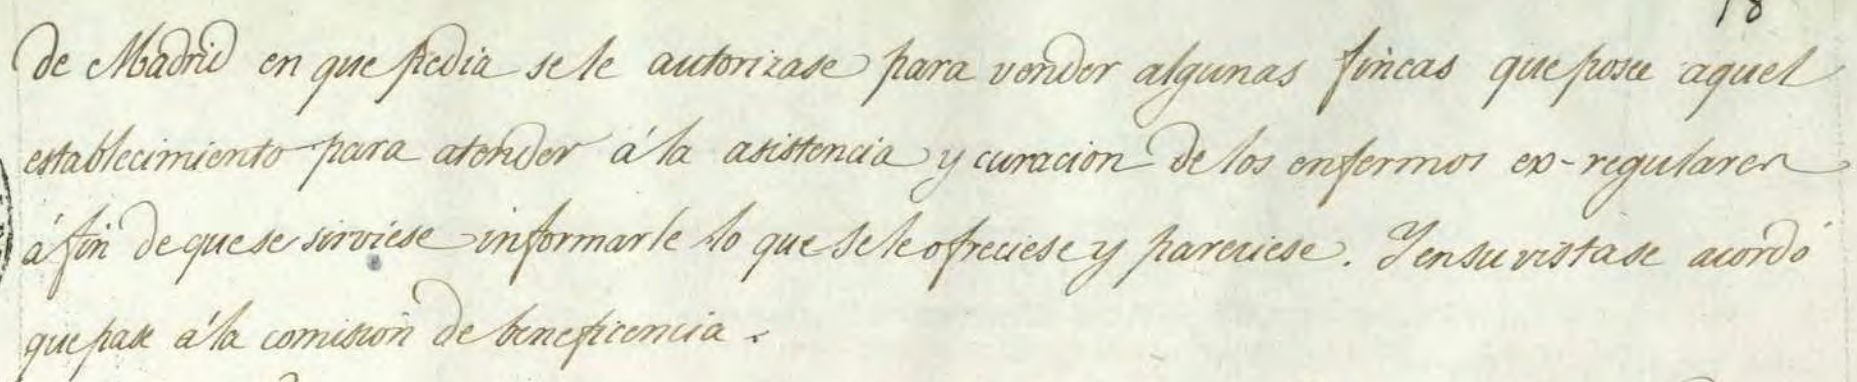 18
de Madrid en que pedia se le autorizase para vender algunas fincas que posee aquel
establecimiento para atender á la asistencia y curacion de los enfermos ex-regulares
á fin de que se sirviese informarle lo que se le ofreciese y pareciese. Y en su vista se acordó
que pase á la comision de beneficencia.